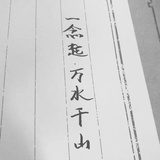 一念起·万水千山